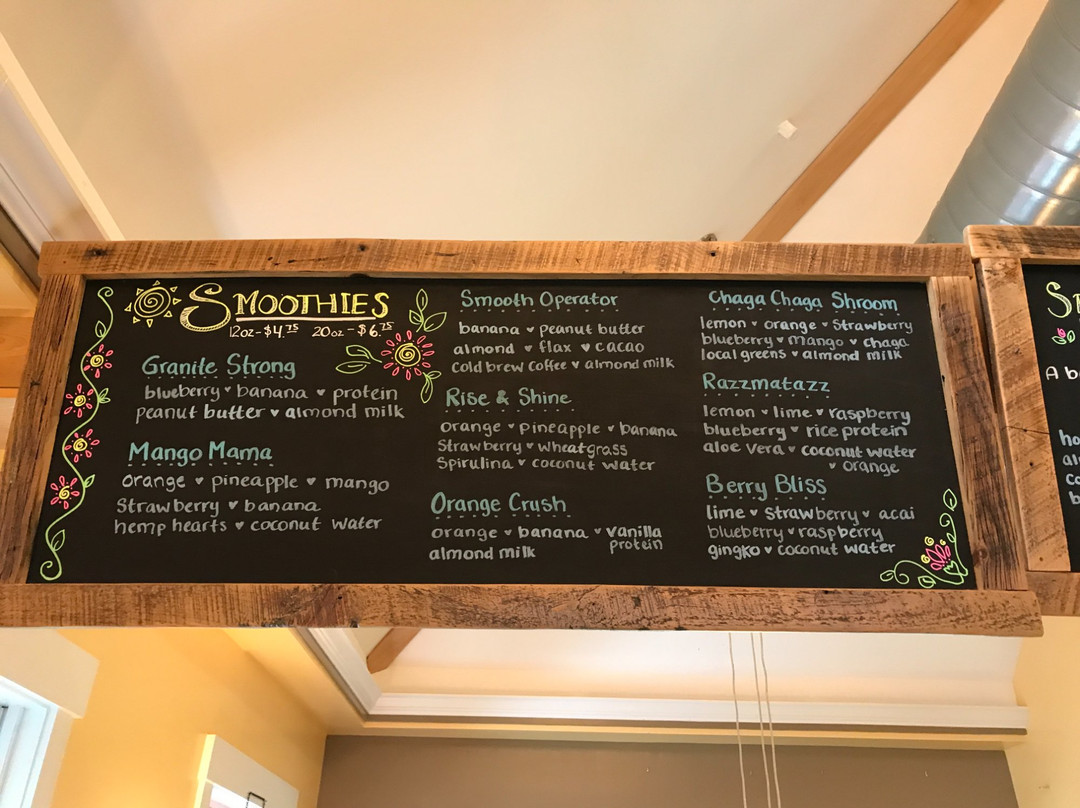 SMOOTHIES
12oz - $4.75 20oz - $6.75
Granite Strong
blueberry ♥ banana ♥ protein
peanut butter ♥ almond milk
Mango Mama
orange ♥ pineapple ♥ mango
Strawberry ♥ banana
hemp hearts ♥ coconut water
Smooth Operator
banana ♥ peanut butter
almond ♥ flax ♥ cacao
cold brew coffee ♥ almond milk
Rise & Shine
orange ♥ pineapple ♥ banana
Strawberry ♥ wheatgrass
Spirulina ♥ coconut water
Orange Crush
orange ♥ banana ♥ vanilla
protein
almond milk
Chaga Chaga Shroom
lemon ♥ orange ♥ Strawberry
blueberry ♥ mango ♥ chaga
local greens ♥ almond milk
Razzmatazz
lemon ♥ lime ♥ raspberry
blueberry ♥ rice protein
aloe vera ♥ coconut water
♥ orange
Berry Bliss
lime ♥ strawberry ♥ acai
blueberry ♥ raspberry
gingko ♥ coconut water